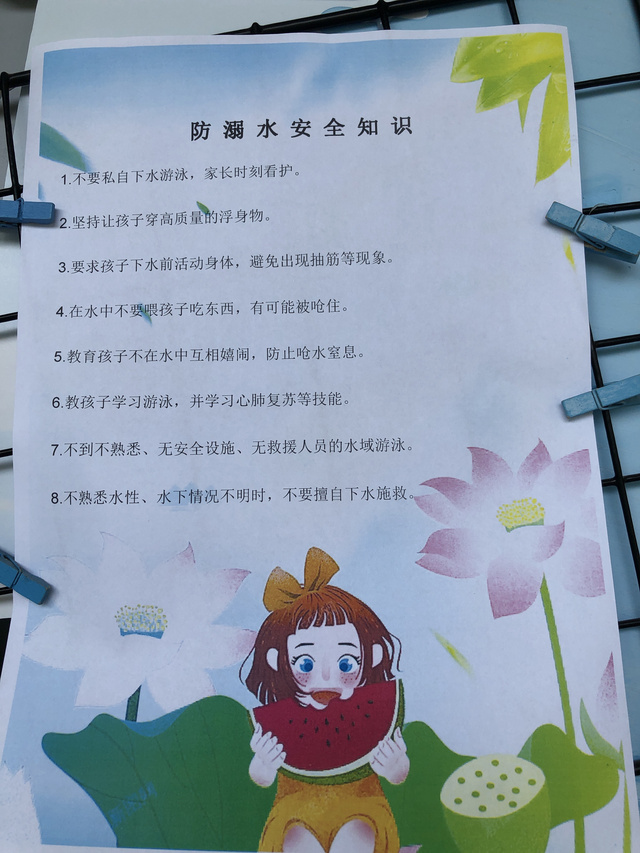 防溺水安全知识
1.不要私自下水游泳，家长时刻看护。
2.坚持让孩子穿高质量的浮身物。
3.要求孩子下水前活动身体，避免出现抽筋等现象。
4.在水中不要喂孩子吃东西，有可能被呛住。
5.教育孩子不在水中互相嬉闹，防止呛水窒息。
6.教孩子学习游泳，并学习心肺复苏等技能。
7.不到不熟悉、无安全设施、无救援人员的水域游泳。
8.不熟悉水性、水下情况不明时，不要擅自下水施救。